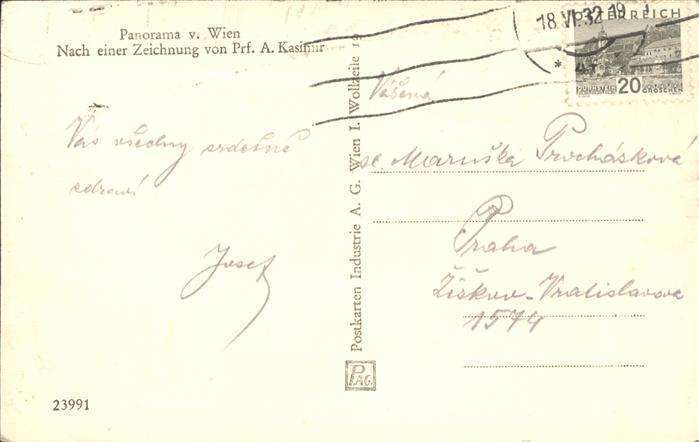 Panorama v. Wien
Nach einer Zeichnung von Prf. A. Kasimir
Vás všechny srdečně
zdraví
Josef
23991
Postkarten Industrie A. G. Wien I. Wollzeile 19
PAG.
18 VI 32 19
ÖSTERREICH
20
GROSCHEN
Vážená
sl. Maruška Procházková
Praha
Žižkov-Vratislavova
1574